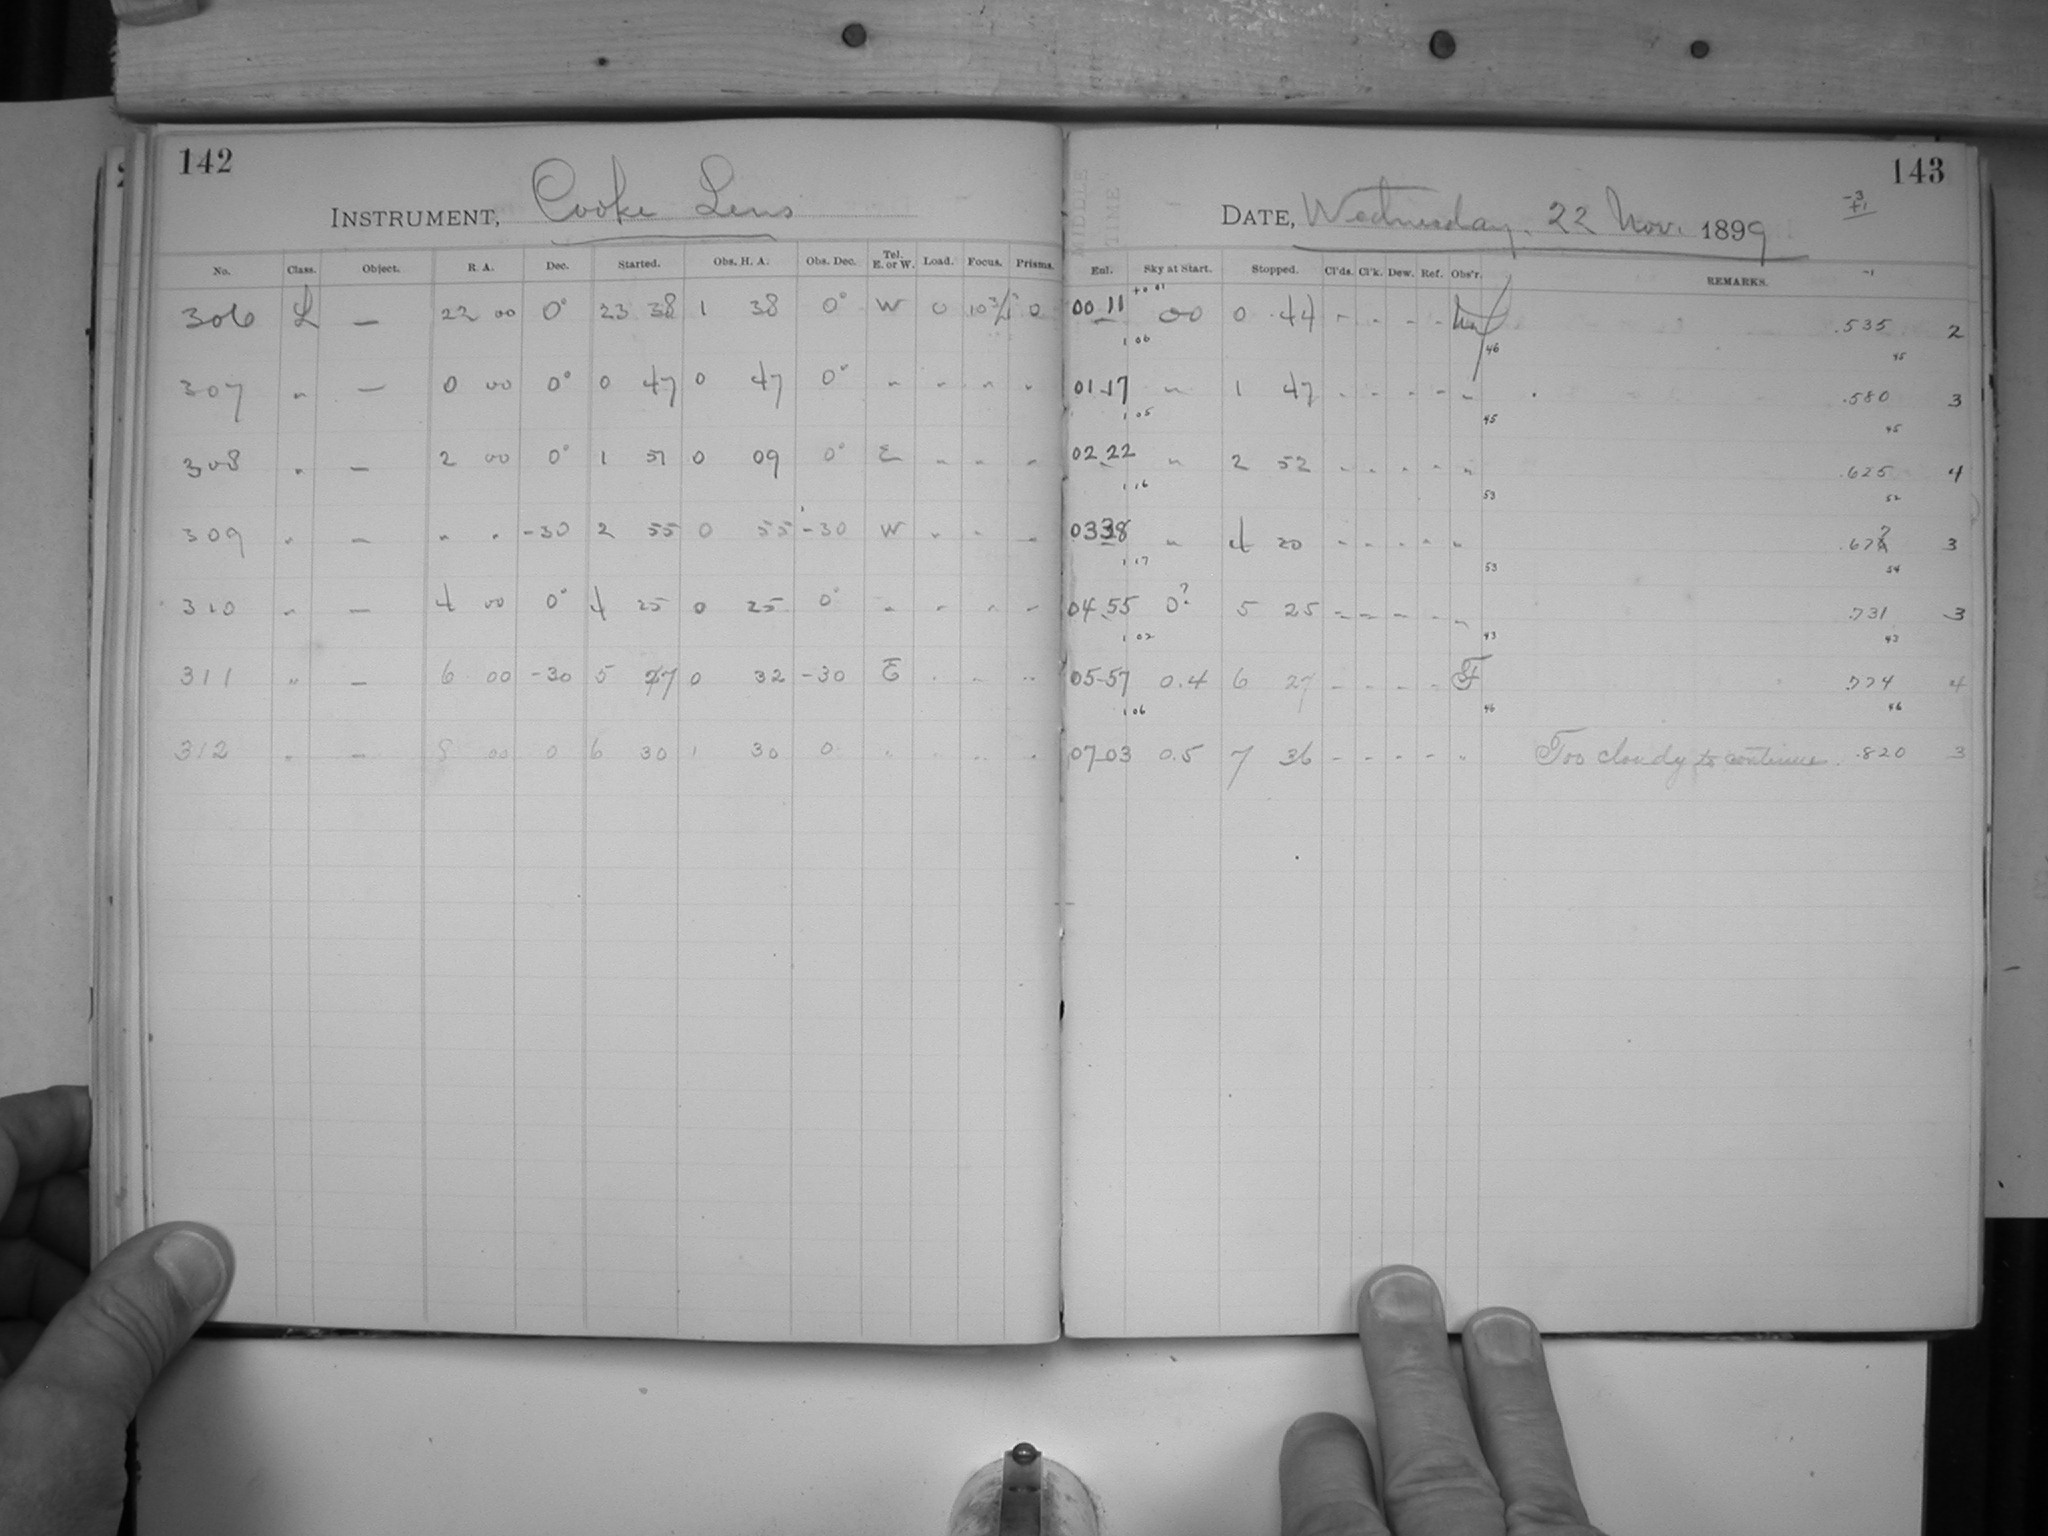 142
INSTRUMENT, Cooke Lens
No. Class. Object. R. A. Dec. Started. Obs. H. A. Obs. Dec. Tel. E. or W. Load. Focus. Prisms.
306 L — 22 00 0° 23 38 1 38 0° W 0 0
307 " — 0 00 0° 0 47 0 47 0° " " " "
308 " — 2 00 0° 1 51 0 09 0° E " " "
309 " — " " -30 2 55 0 55 -30 W " " "
310 " — 4 00 0° 4 25 0 25 0° " " " "
311 " — 6 00 -30 5 27 0 32 -30 E " " "
312 " — 8 00 0 6 30 1 30 0 " " " "
143
DATE, Wednesday, 22 Nov. 1899
-3
+1
Exl. Sky at Start. Stopped. Cl'ds. Cl'k. Dew. Ref. Obs'r. REMARKS. -1
00 11 00 0 44 - - - - .535 2
1 06 46 45
01 17 " 1 47 - - - - " .580 3
1 05 45 45
02 22 " 2 52 - - - - " .625 4
1 16 53 52
03 38 " 4 20 - - - - " 3
1 17 53 54
04 55 0? 5 25 - - - - " .731 3
1 02 43 43
05-57 0.4 6 27 - - - - F .774 4
1 06 46 46
07-03 0.5 7 36 - - - - " Too cloudy to continue. .820 3